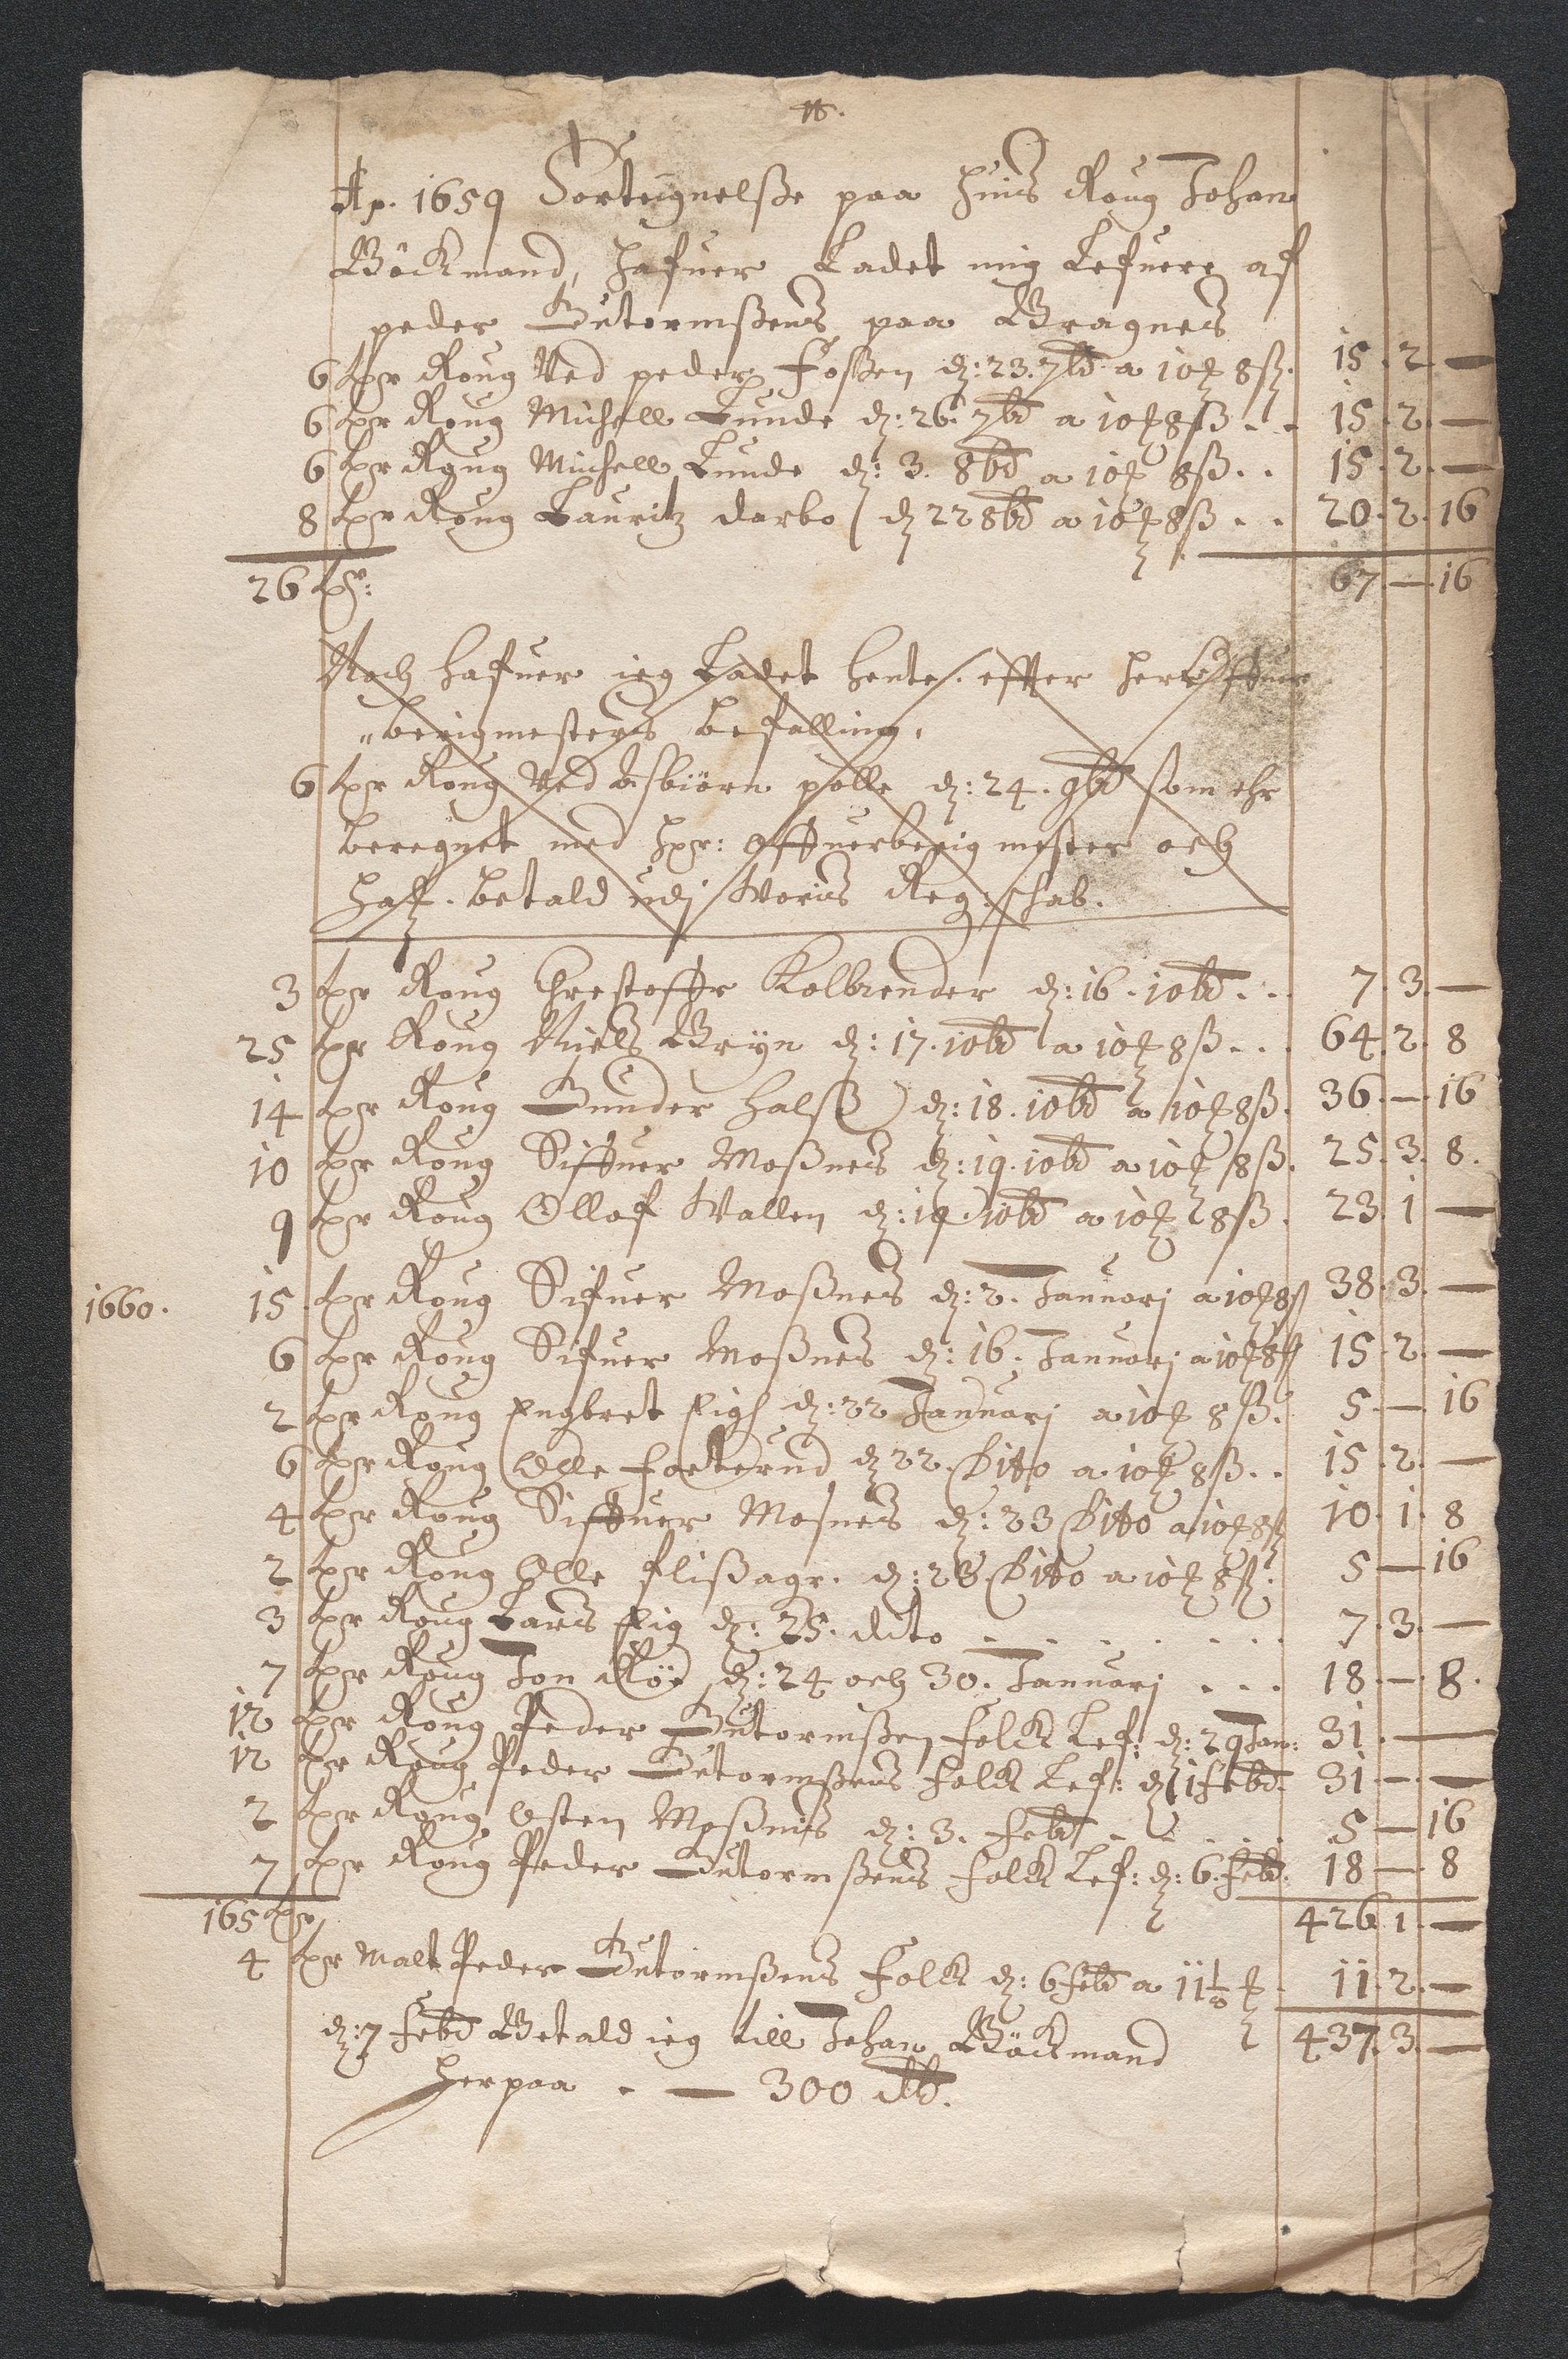 Ao. 1659 Forteignelsße paa huis Roug Johan
Böckmand, hafuer Ladet mig Lefuere af
peder Gutormßens paa Bragnes
6 tr Roug Ved peder Foßen d: 23. 7bd a 10 8ß. 15 . 2 —
6 tr Roug Michell Lunde d: 26. 7bd a 10 8ß . . 15 . 2 . —
6 tr Roug Michell Lunde d: 3. 8bd a 10 8ß . . 15 . 2 . —
8 tr Roug Lauritz darbo d 22 8bd a 10 8ß . . 20 . 2 . 16
26 tr: 67 . — . 16
Noch hafuer ieg Ladet hente . effter her Offuer
berigmesters befalling,
6 tr Roug Ved Asbiörn polle d: 24. 9bd som ehr
beregnet med hr: offuerberig mester och
haff. betald udj Woris Reg:schab.
3 tr Roug Chrestoffr Kolbrender d: 16. 10bd . . 7 . 3 . —
25 tr Roug Niels Bryn d: 17. 10bd a 10 8ß . . 64 . 2 . 8
14 tr Roug Gunder halß d: 18. 10bd a 10 8ß. 36 . — . 16
10 tr Roug Siffuer Moßnes d: 19. 10bd a 10 8ß. 25 . 3 . 8.
9 tr Roug Ollof Wallen d: 19. 10bd a 10 8ß. 23 . 1 —
1660. 15 . tr Roug Sifuer Moßnes d: 2. Januarj a 10 8ß 38 . 3 . —
6 tr Roug Sifuer Moßnes d: 16. Januarj a 10 8ß 15 . 2 . —
2 tr Roug Engbret d: 22 Januarj a 10 8ß. 5 . — . 16
6 tr Roug Olle d 22. Dito a 10 8ß . . 15 . 2 . —
4 tr Roug Siffuer Mosnes d: 23 Dito a 10 8ß 10 . 1 . 8
2 tr Roug Olle flißagr. d: 23. Dito a 10 8ß. 5 — 16
3 tr Roug Lars d: 25. dito . . . . . . 7 . 3 . —
7 tr Roug Jon Röd d: 24 och 30. Januarj . . . 18 . — . 8.
12 tr Roug Peder Gutormßen Folck Lef: d: 29 Jan: 31 . —
12 tr Roug Peder Gutormßens Folck Lef: d 1 Febd. 31 — . —
2 tr Roug Osten Moßnis d: 3. Febd . . . . 5 — 16
7 tr Roug Peder Gutormßens Folck Lef: d: 6. Febd. 18 — . 8
165 tr 426 . 1 . —
4 tr Malt Peder Gutormßens Folck d: 6 Febd a 11½ 11 . 2 . —
d: 7 Febd Betald ieg till Johan Böckmand 437 . 3 . —
herpaa . — 300 dr.